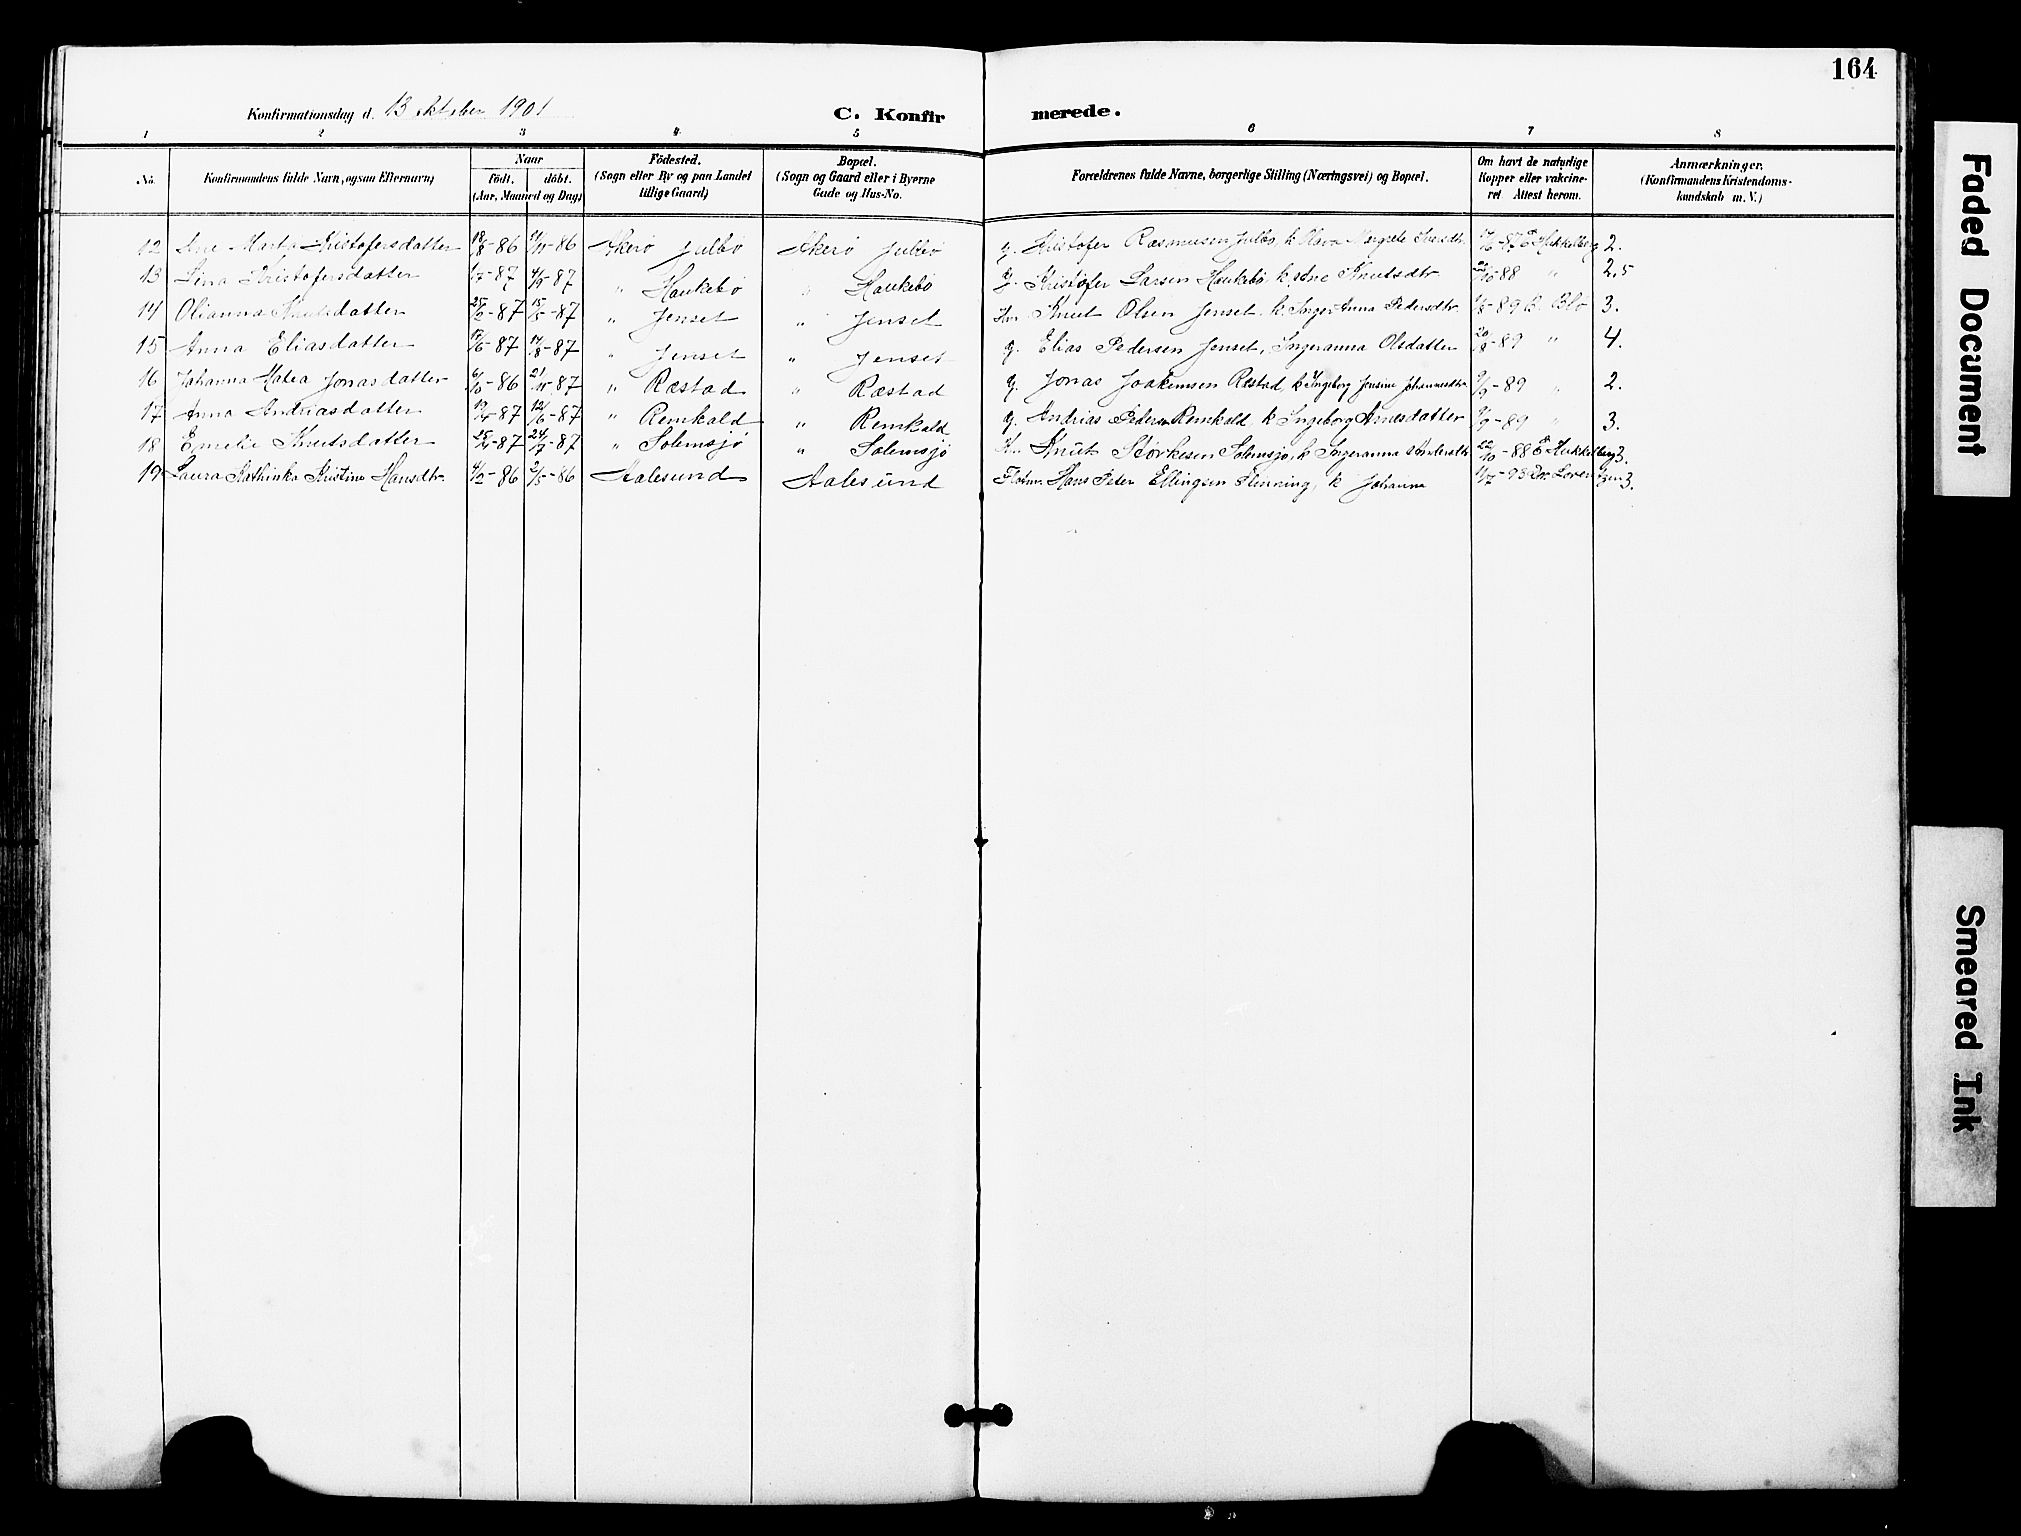 164
Konfirmationsdag d. 13 Oktober 1901
C. Konfirmerede.
1 2 3 4 5 6 7 8
No. Konfirmandens fulde Navn, ogsaa Efternavn) Naar födt. döbt. (Aar, Maaned og Dag) Födested. (Sogn eller By og paa Landet tillige Gaard) Bopæl. (Sogn og Gaard eller i Byerne Gade og Hus-No. Forældrenes fulde Navne, borgerlige Stilling (Næringsvei) og Bopæl. Om havt de naturlige Kopper eller vakcineret Attest herom. Anmærkninger. (Konfirmandens Kristendomskundskab m. V.)
12 Ane Marta Kristofersdatter 18/8-86 21/11-86 Akerö Julbö Akerö Julbö g. Kristofer Rasmusen Julbö, k. Olava Margrete 17/6-87 E Hukkelberg 2.
13 Lina Kristofersdatter 1/7-87 4/9-87 " Haukebö " Haukebö g. Kristofer Larsen Haukebö k. Ane Knutsdtr. 88 " 2.5
14 Olianna Knutsdatter 25/2-87 15/5-87 " Jenset " Jenset Knut Olsen Jenset k. Inger Anna Pedersdtr. 1/8-89 B. Blo 3.
15 Anna Eliasdatter 12/6-87 14/8-87 " Jenset " Jenset g. Elias Pedersen Jenset, Ingeranna Olsdatter 20/8-89 " 4.
16 Johanna Matea Jonasdatter 6/10-86 21/11-87 " Ræstad " Ræstad g. Jonas Joakimsen Ræstad, k Ingeborg Jensine Johannesdtr. 9/9-89 " 2.
17 Anna Andriasdatter 19/4-87 12/6-87 " Remkald " Remkald g. Andrias Pedersen Remkald k Ingeborg Arnesdatter 9/9-89 " 3.
18 Emelie Knutsdatter 25/4-87 24/7-87 " Solemsjö " Solemsjö Knut Störkesen Solemsjö, k Ingeranna Andersdtr 22/10-88 E Hukkelberg 3.
19 Laura Kathinka Kristine Hansdtr. 4/2-86 2/5-86 Aalesund Aalesund Hans Peter Ellingsen Flenning, k Johanna 11/7-93 Dr. Lorentzen 3.
Faded Document
Smeared Ink